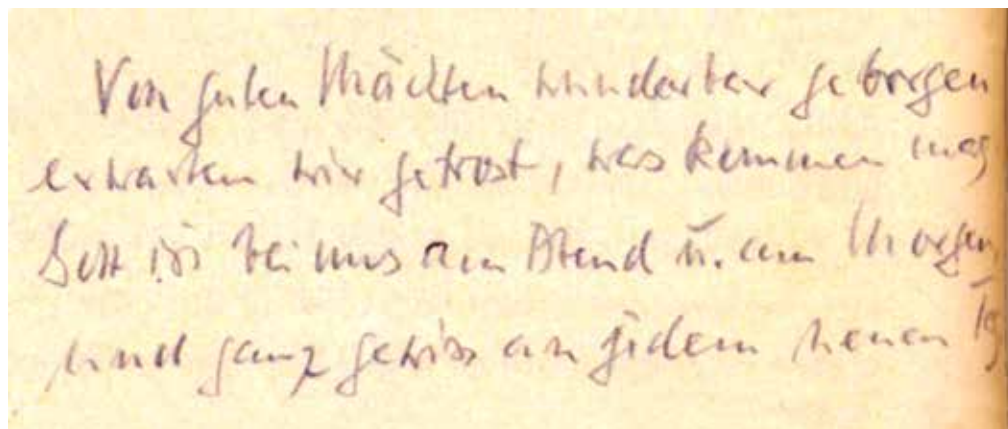 Von guten Mächten wunderbar geborgen
erwarten wir getrost, was kommen mag
Gott ist bei uns am Abend u. am Morgen
und ganz gewiss an jedem neuen Tg